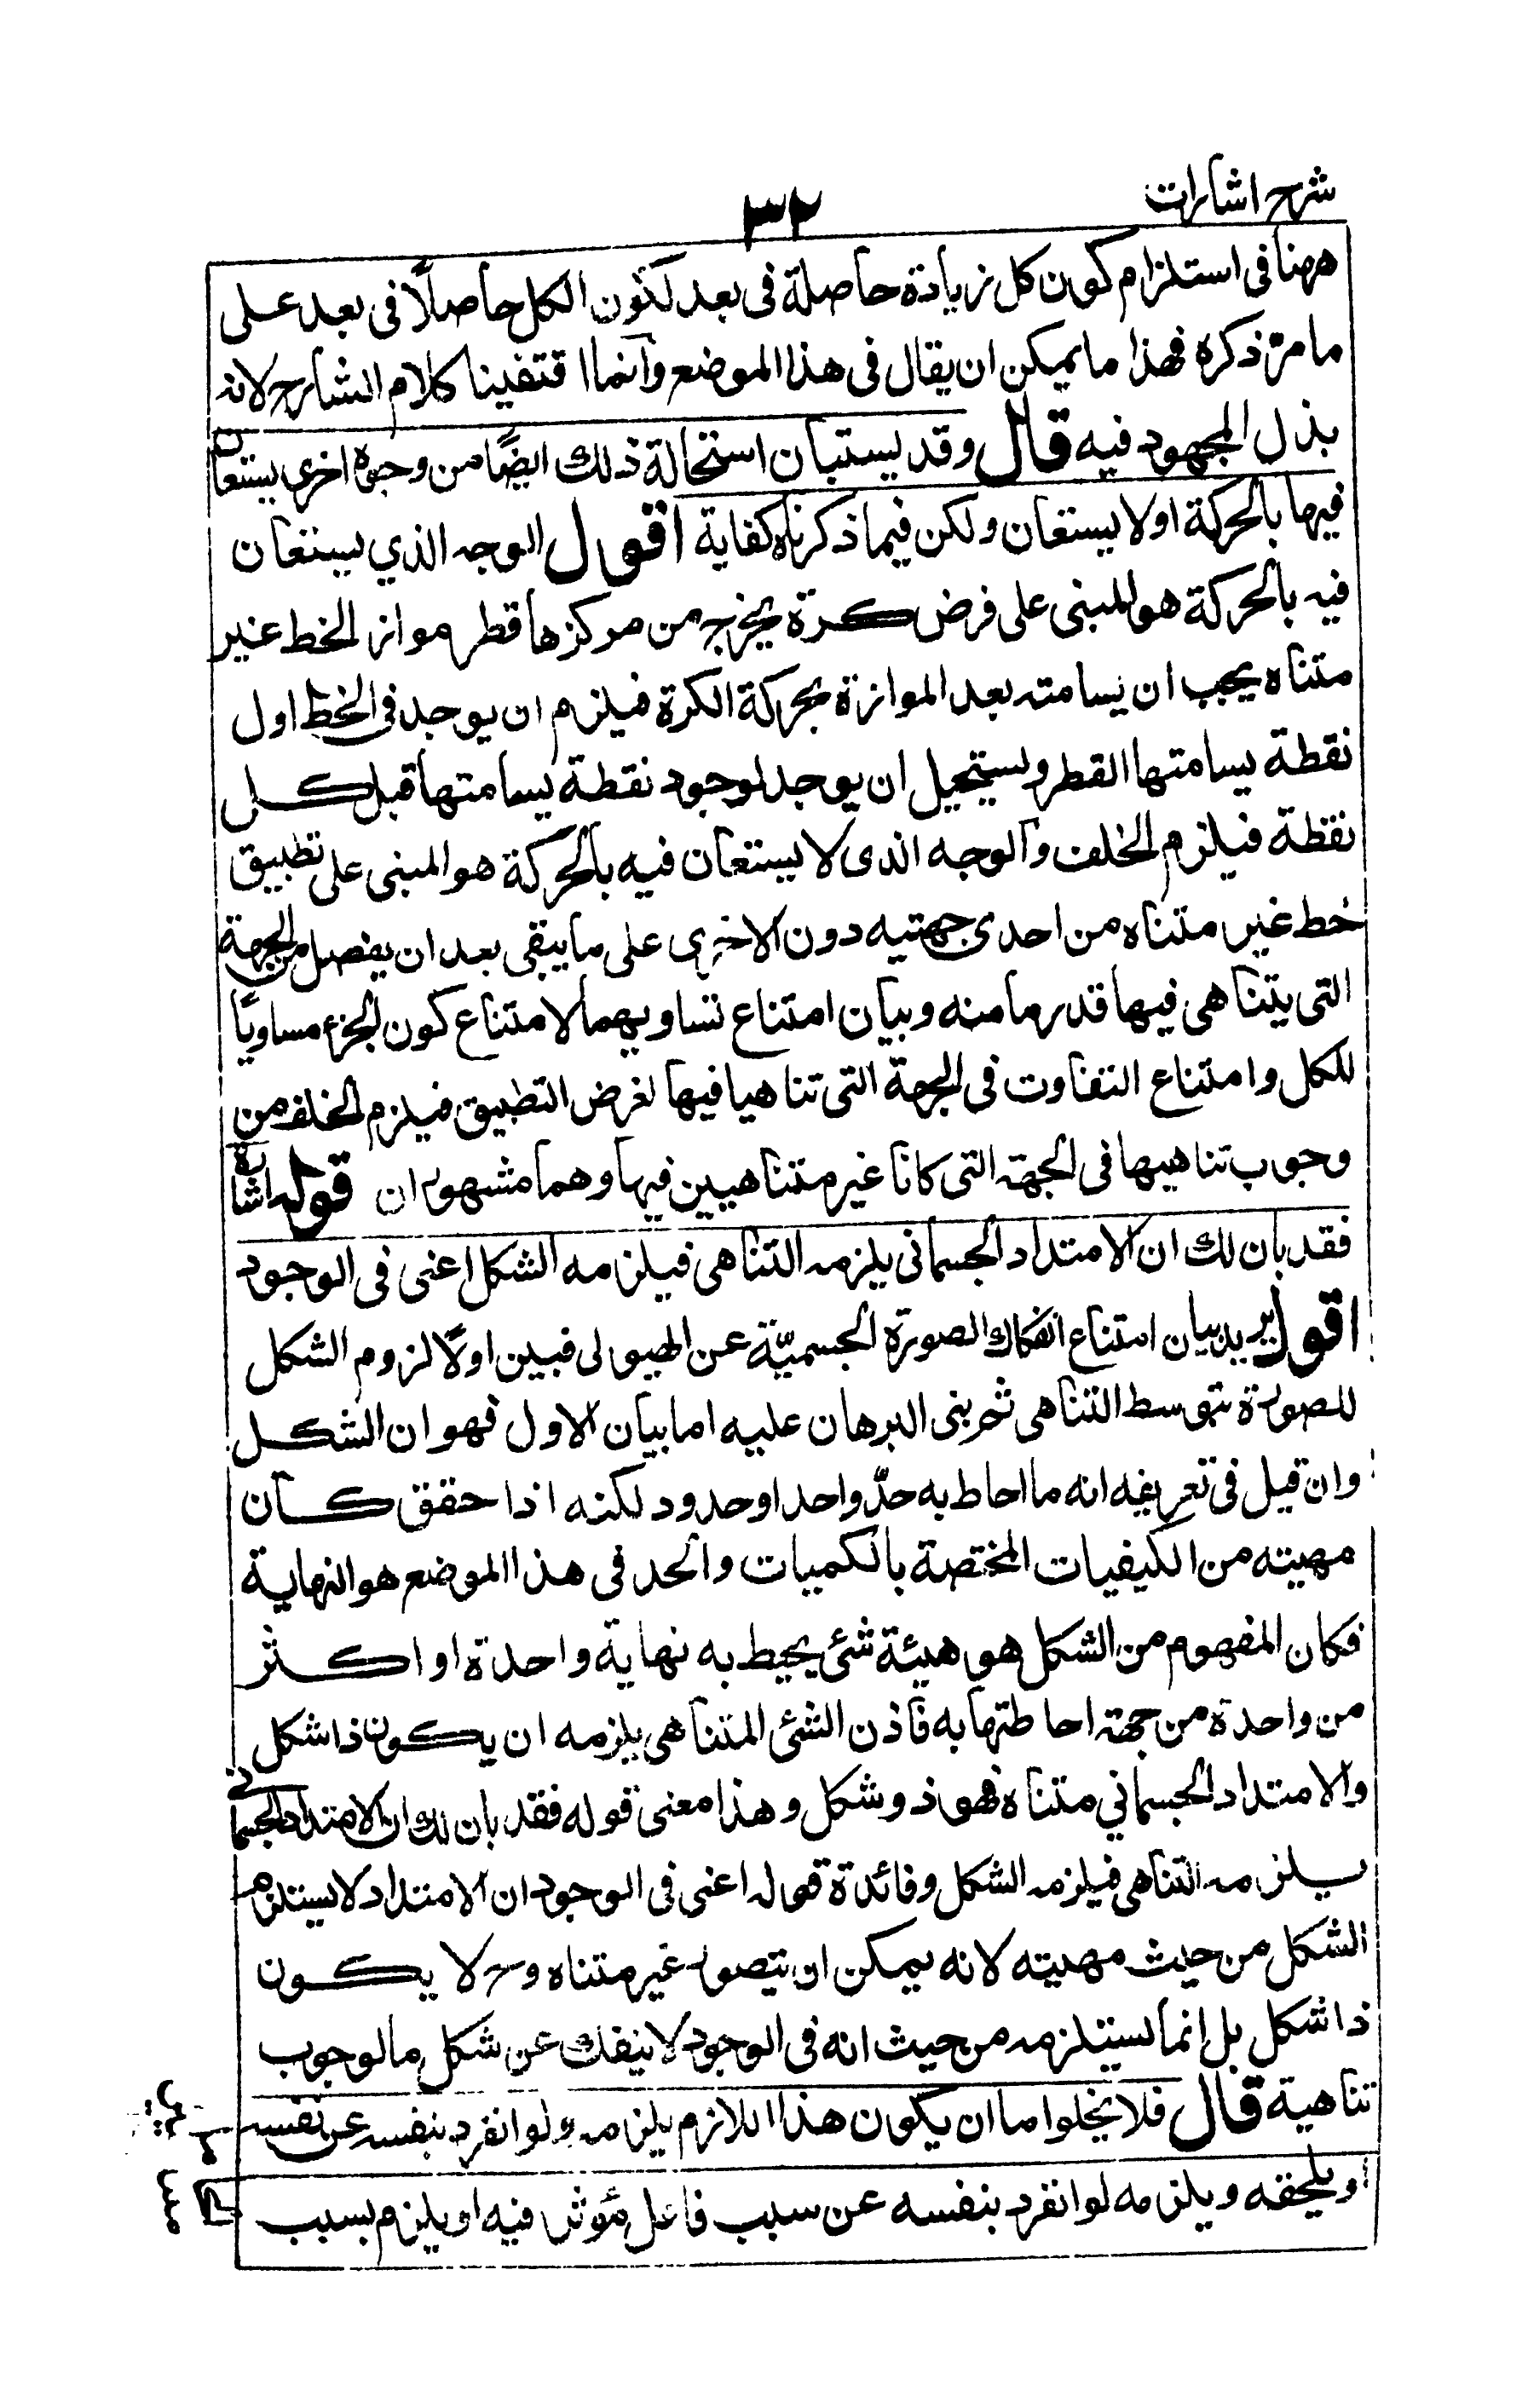 شرح اشارات
٣٢
ههنا فى استلزام كون كل زيادة حاصلة فى بعد لكون الكل حاصلاً فى بعد على
ما مرّ ذكره فهذا ما يمكن ان يقال فى هذا الموضع وانما اقتفينا كلام الشارح لانه
بذل المجهود فيه قال وقد يستبان استحالة ذلك ايضًا من وجوه اخرى يستعان
فيها بالحركة اولا يستعان ولكن فيما ذكرناه كفاية اقول الوجه الذي يستعان
فيه بالحركة هو المبنى على فرض كرة يخرج من مركزها قطر مواز لخط غير
متناه يجب ان يسامته بعد الموازة بحركة الكرة فيلزم ان يوجد فى الخط اول
نقطة يسامتها القطر ويستحيل ان يوجد لوجود نقطة يسامتها قبل كل
نقطة فيلزم الخلف والوجه الذى لا يستعان فيه بالحركة هو المبنى على تطبيق
خط غير متناه من احدى جهتيه دون الاخرى على ما يبقى بعد ان يفصل من الجهة
التى يتناهى فيها قدر ما منه وبيان امتناع تساويهما لامتناع كون الجزء مساويًا
للكل وامتناع التفاوت فى الجهة التى تناهيا فيها لغرض التطبيق فيلزم الخلف من
وجوب تناهيها فى الجهة التى كانا غير متناهيين فيها وهما مشهوران قوله اشارة
فقد بان لك ان الامتداد الجسمانى يلزمه التناهى فيلزمه الشكل اعنى فى الوجود
اقول يريد بيان امتناع انفكاك الصورة الجسميّة عن الهيولى فبين اولًا لزوم الشكل
للصورة بتوسط التناهى ثم بنى البرهان عليه اما بيان الاول فهو ان الشكل
وان قيل فى تعريفه انه ما احاط به حدّ واحد او حدود لكنه اذا حقق كان
مهيته من الكيفيات المختصة بالكميات والحد فى هذا الموضع هو النهاية
فكان المفهوم من الشكل هو هيئة شئ يحيط به نهاية واحدة او اكثر
من واحدة من جهة احاطتها به فاذن الشئ المتناهى يلزمه ان يكون ذا شكل
والامتداد الجسماني متناه فهو ذو شكل وهذا معنى قوله فقد بان لك ان الامتداد الجسمانى
يلزمه التناهى فيلزمه الشكل وفائدة قوله اعنى فى الوجود ان الامتداد لا يستلزم
الشكل من حيث مهيته لانه يمكن ان يتصور غير متناه وح لا يكون
ذا شكل بل انما يستلزمه من حيث انه فى الوجود لا ينفك عن شكل ما لوجوب
تناهية قال فلا يخلوا ما ان يكون هذا اللازم يلزمه ولو انفرد بنفسه عن نفسه
او يلحقه ويلزمه لو انفرد بنفسه عن سبب فاعل مؤثر فيه او يلزم بسبب